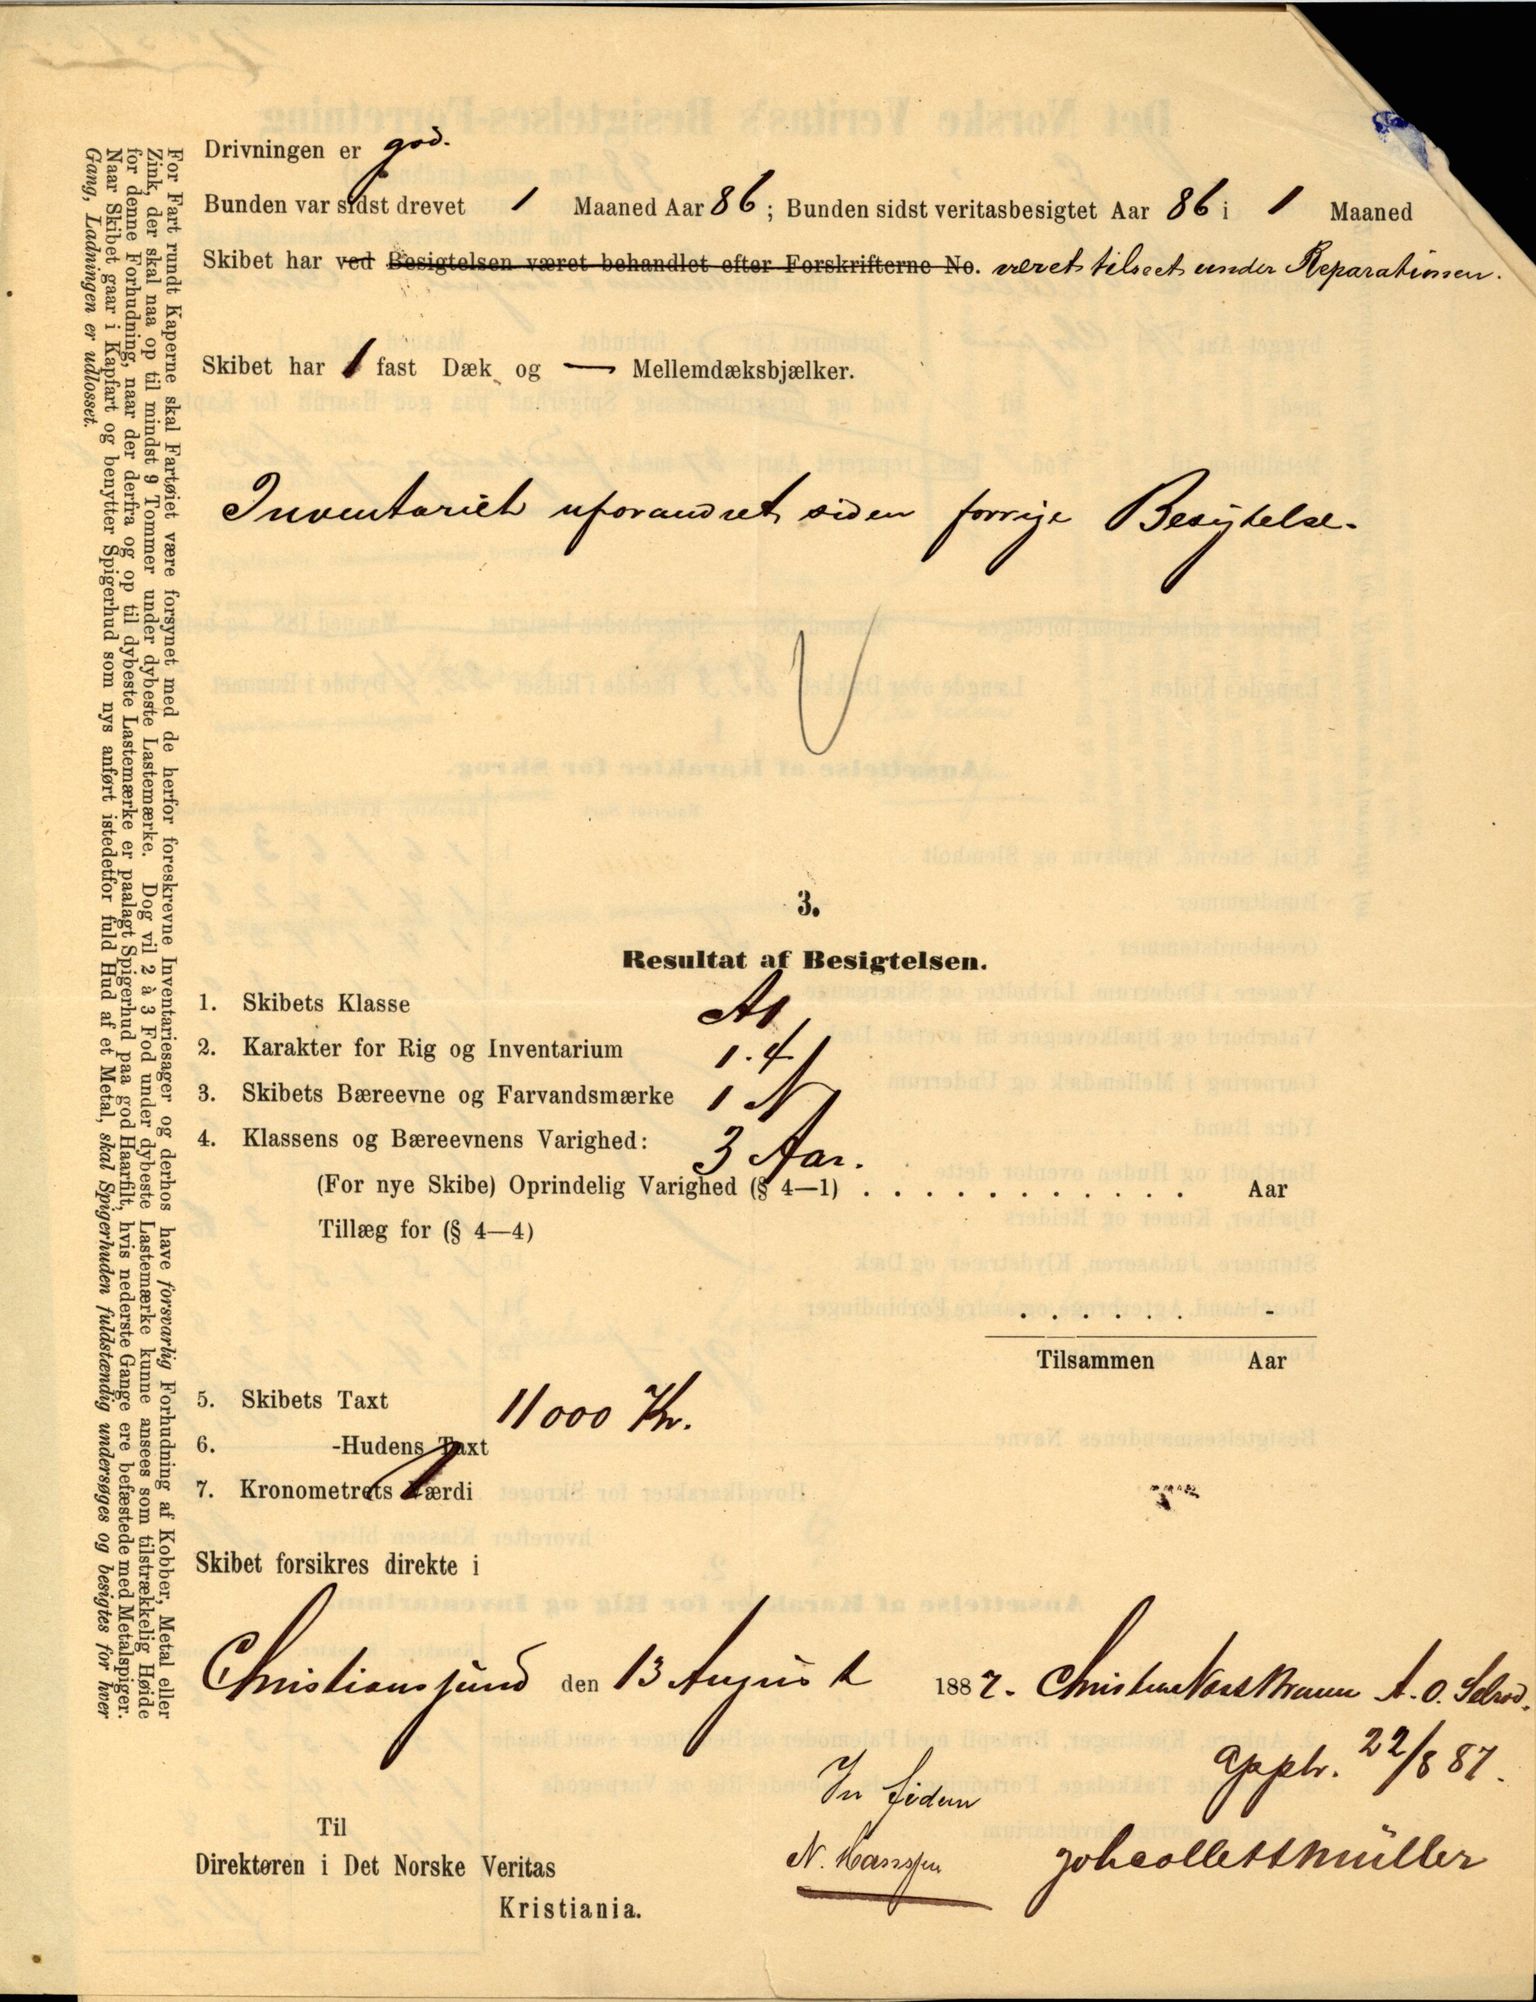 Drivningen er god.
Bunden var sidst drevet 1 Maaned Aar 86; Bunden sidst veritasbesigtet Aar 86 i 1 Maaned
Skibet har ved Besigtelsen været behandlet efter Forskrifterne No. været tilseet under Reparationen.
Skibet har 1 fast Dæk og — Mellemdæksbjælker.
Inventariet uforandret siden forrige Besigtelse.
3.
Resultat af Besigtelsen.
1. Skibets Klasse A1
2. Karakter for Rig og Inventarium 1.4
3. Skibets Bæreevne og Farvandsmærke 1 N
4. Klassens og Bæreevnens Varighed: 3 Aar.
(For nye Skibe) Oprindelig Varighed (§ 4—1) . . . . . . . . . . . . Aar
Tillæg for (§ 4—4)
. . . . . . -
Tilsammen Aar
5. Skibets Taxt 11000 Kr.
6. -Hudens Taxt
7. Kronometrets Værdi
Skibet forsikres direkte i
Christianssund den 13 August 1887. A. O.
22/8 87.
N. Hanssen
Joh Collett Müller
Til
Direktøren i Det Norske Veritas
Kristiania.
For Fart rundt Kaperne skal Fartøiet være forsynet med de herfor foreskrevne Inventariesager og derhos have forsvarlig Forhudning af Kobber, Metal eller
Zink, der skal naa op til mindst 9 Tommer under dybeste Lastemærke. Dog vil 2 à 3 Fod under dybeste Lastemærke kunne ansees som tilstrækkelig Høide
for denne Forhudning, naar der derfra og op til dybeste Lastemærke er paalagt Spigerhud paa god Haarfilt, hvis nederste Gange ere befæstede med Metalspiger.
Naar Skibet gaar i Kapfart og benytter Spigerhud som nys anført istedetfor fuld Hud af et Metal, skal Spigerhuden fuldstændig undersøges og besigtes for hver
Gang, Ladningen er udlosset.